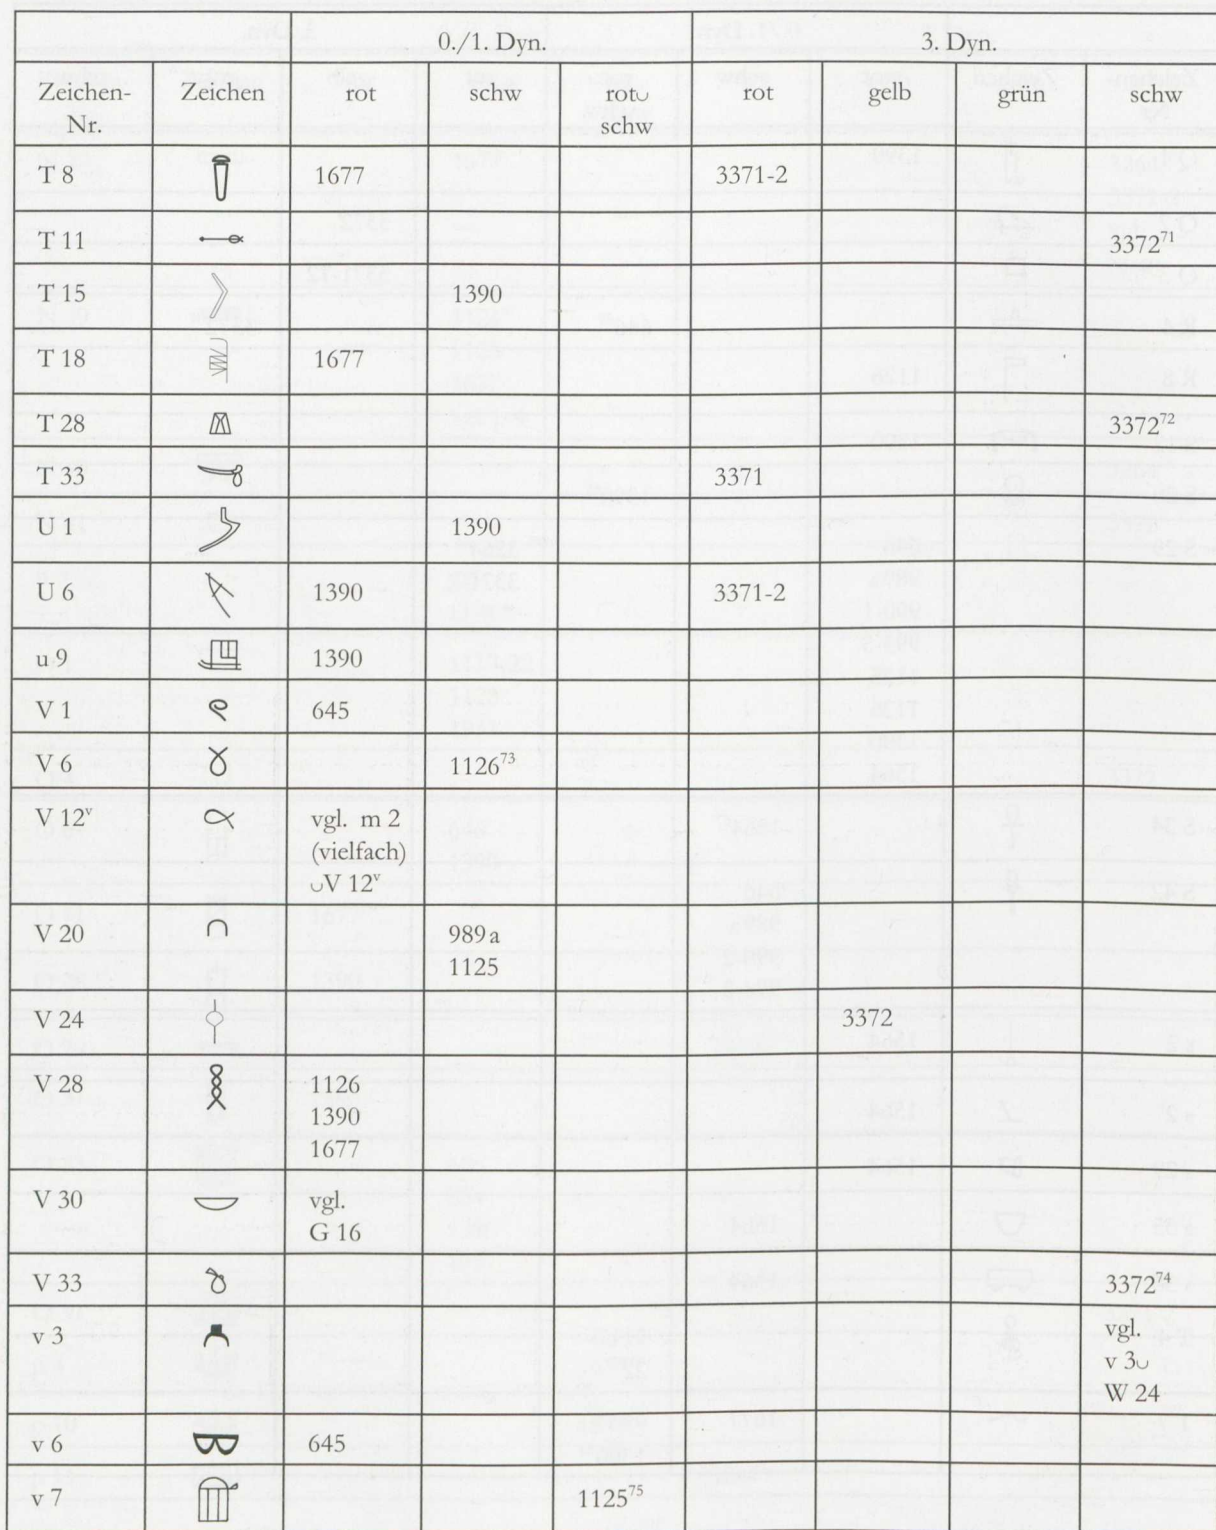 0./1. Dyn. 3. Dyn.
Zeichen- Zeichen rot schw rot∪ rot gelb grün schw
Nr. schw
T 8 1677 3371-2
T 11 3372⁷¹
T 15 1390
T 18 1677
T 28 3372⁷²
T 33 3371
U 1 1390
U 6 1390 3371-2
u 9 1390
V 1 645
V 6 1126⁷³
V 12ᵛ vgl. m 2
(vielfach)
∪V 12ᵛ
V 20 989a
1125
V 24 3372
V 28 1126
1390
1677
V 30 vgl.
G 16
V 33 3372⁷⁴
v 3 vgl.
v 3∪
W 24
v 6 645
v 7 1125⁷⁵